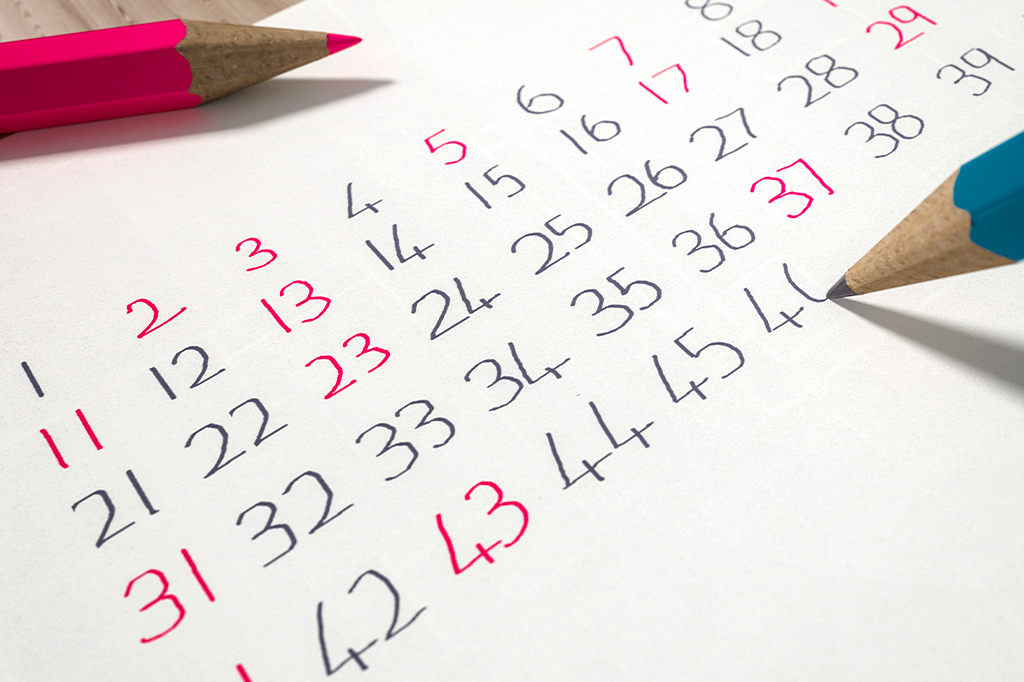 1 2 3 4 5 6 7 8
11 12 13 14 15 16 17 18
21 22 23 24 25 26 27 28 29
31 32 33 34 35 36 37 38 39
42 43 44 45 4